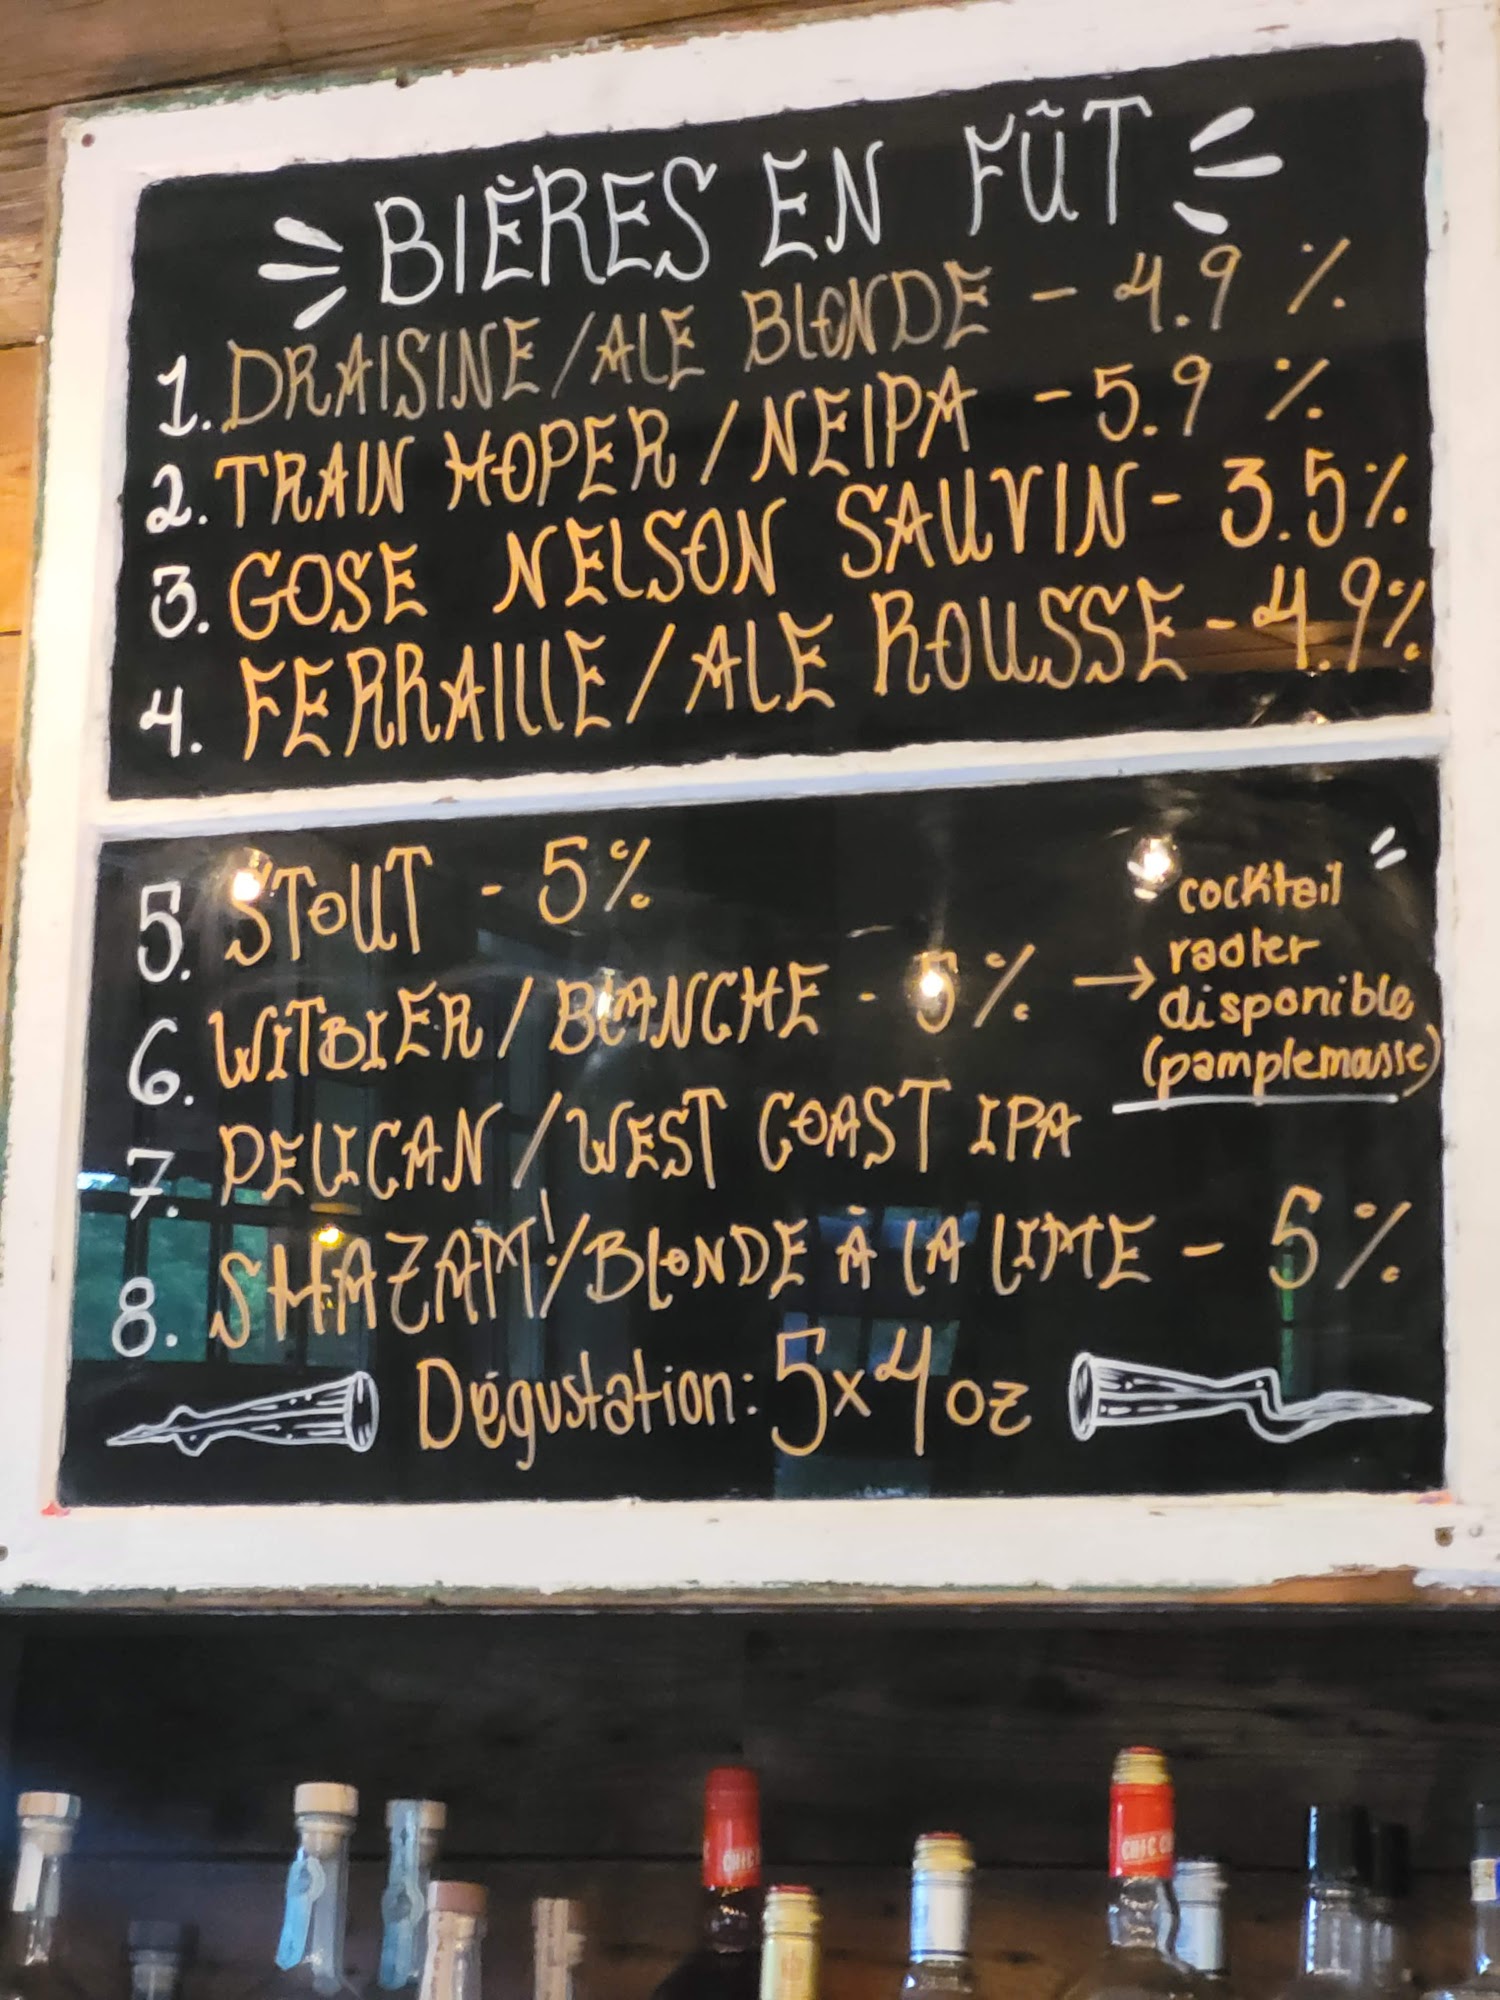 BIÈRES EN FÛT
1. DRAISINE/ALE BLONDE - 4.9 %
2. TRAIN HOPER/NEIPA - 5.9 %
3. GOSE NELSON SAUVIN - 3.5%
4. FERRAILLE/ALE ROUSSE - 4.9%
5. STOUT - 5%
6. WITBIER/BLANCHE - 5 % → cocktail
radler
disponible
(pamplemasse)
7. PELICAN/WEST COAST IPA
8. SHAZAM!/BLONDE À LA LIME - 5 %
Dégustation: 5x4 oz